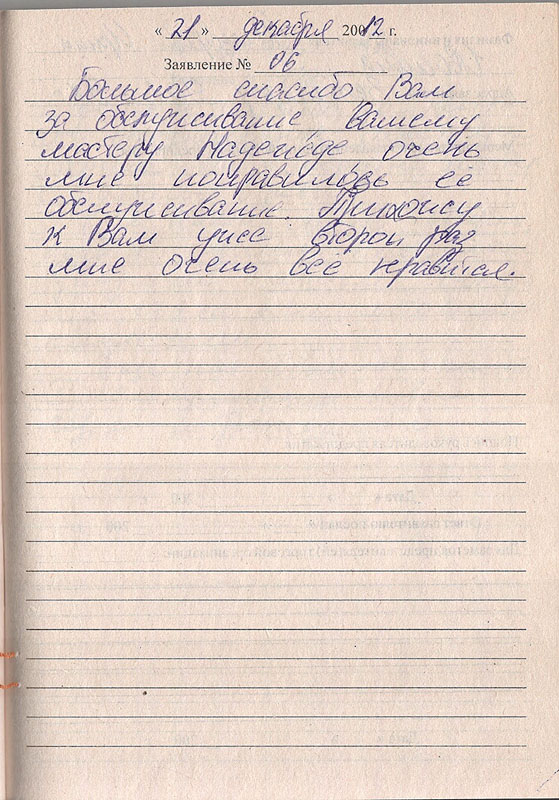 « 21 » декабря 20012 г.
Заявление № 06
Большое спасибо Вам
за обслуживание вашему
мастеру Надежде очень
мне понравилось ее
обслуживание. Прихожу
к Вам уже второй раз
мне очень все нравится.